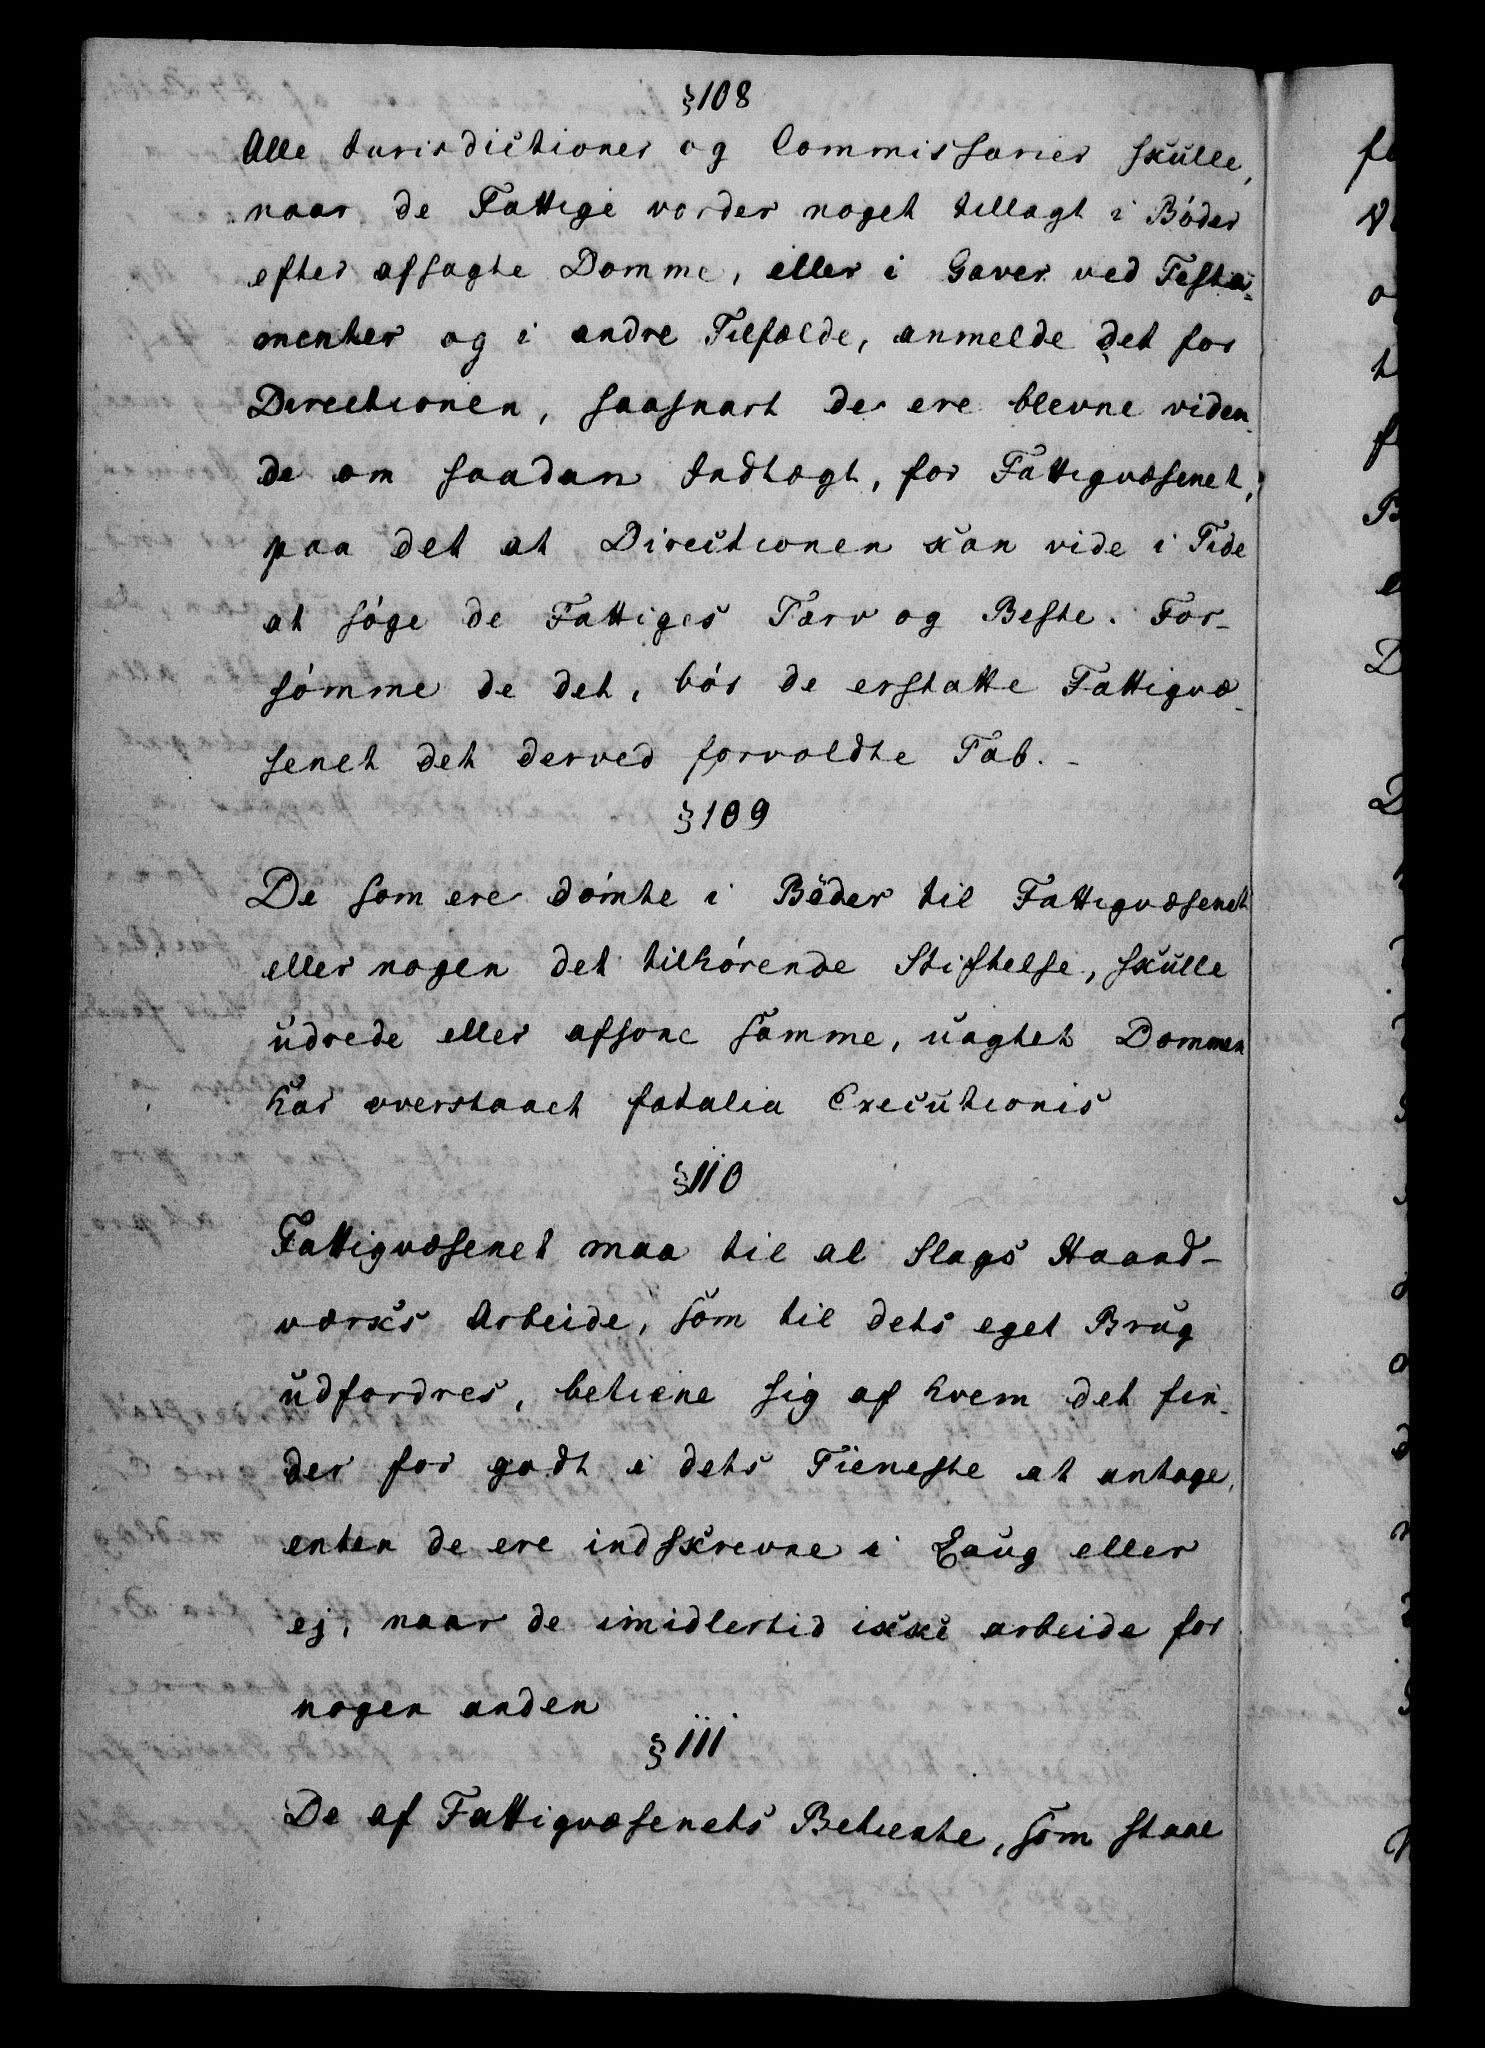 §108
Alle Jurisdictioner og Commissarier skulle,
naar de Fattige vorder noget tillagt i Bøder
efter afsagte Domme, eller i Gaver ved Testa-
menter og i andre Tilfælde, anmelde det for
Directionen, saasnart de ere blevne viden-
de om saadan Indtægt, for Fattigvæsenet,
paa det at Directionen kan vide i Tide
at søge de Fattiges Tarv og Beste. For-
sømme de det, bør de erstatte Fattigvæ-
senet det derved forvoldte Tab.-
§109
De som ere dømte i Bøder til Fattigvæsenet
eller nogen det tilhørende Stiftelse, skulle
udrede eller afsone samme, uagtet Dommen
har overstaaet fatalia Executionis
§110
Fattigvæsenet maa til al Slags Haand-
værks Arbeide, som til dets eget Brug
udfordres, betiene sig af hvem det fin-
der for godt i dets Tieneste at antage,
enten de ere indskrevne i Laug eller
ej, naar de imidlertid ikke arbeide for
nogen anden
§111
De af Fattigvæsenets Betiente, som staae